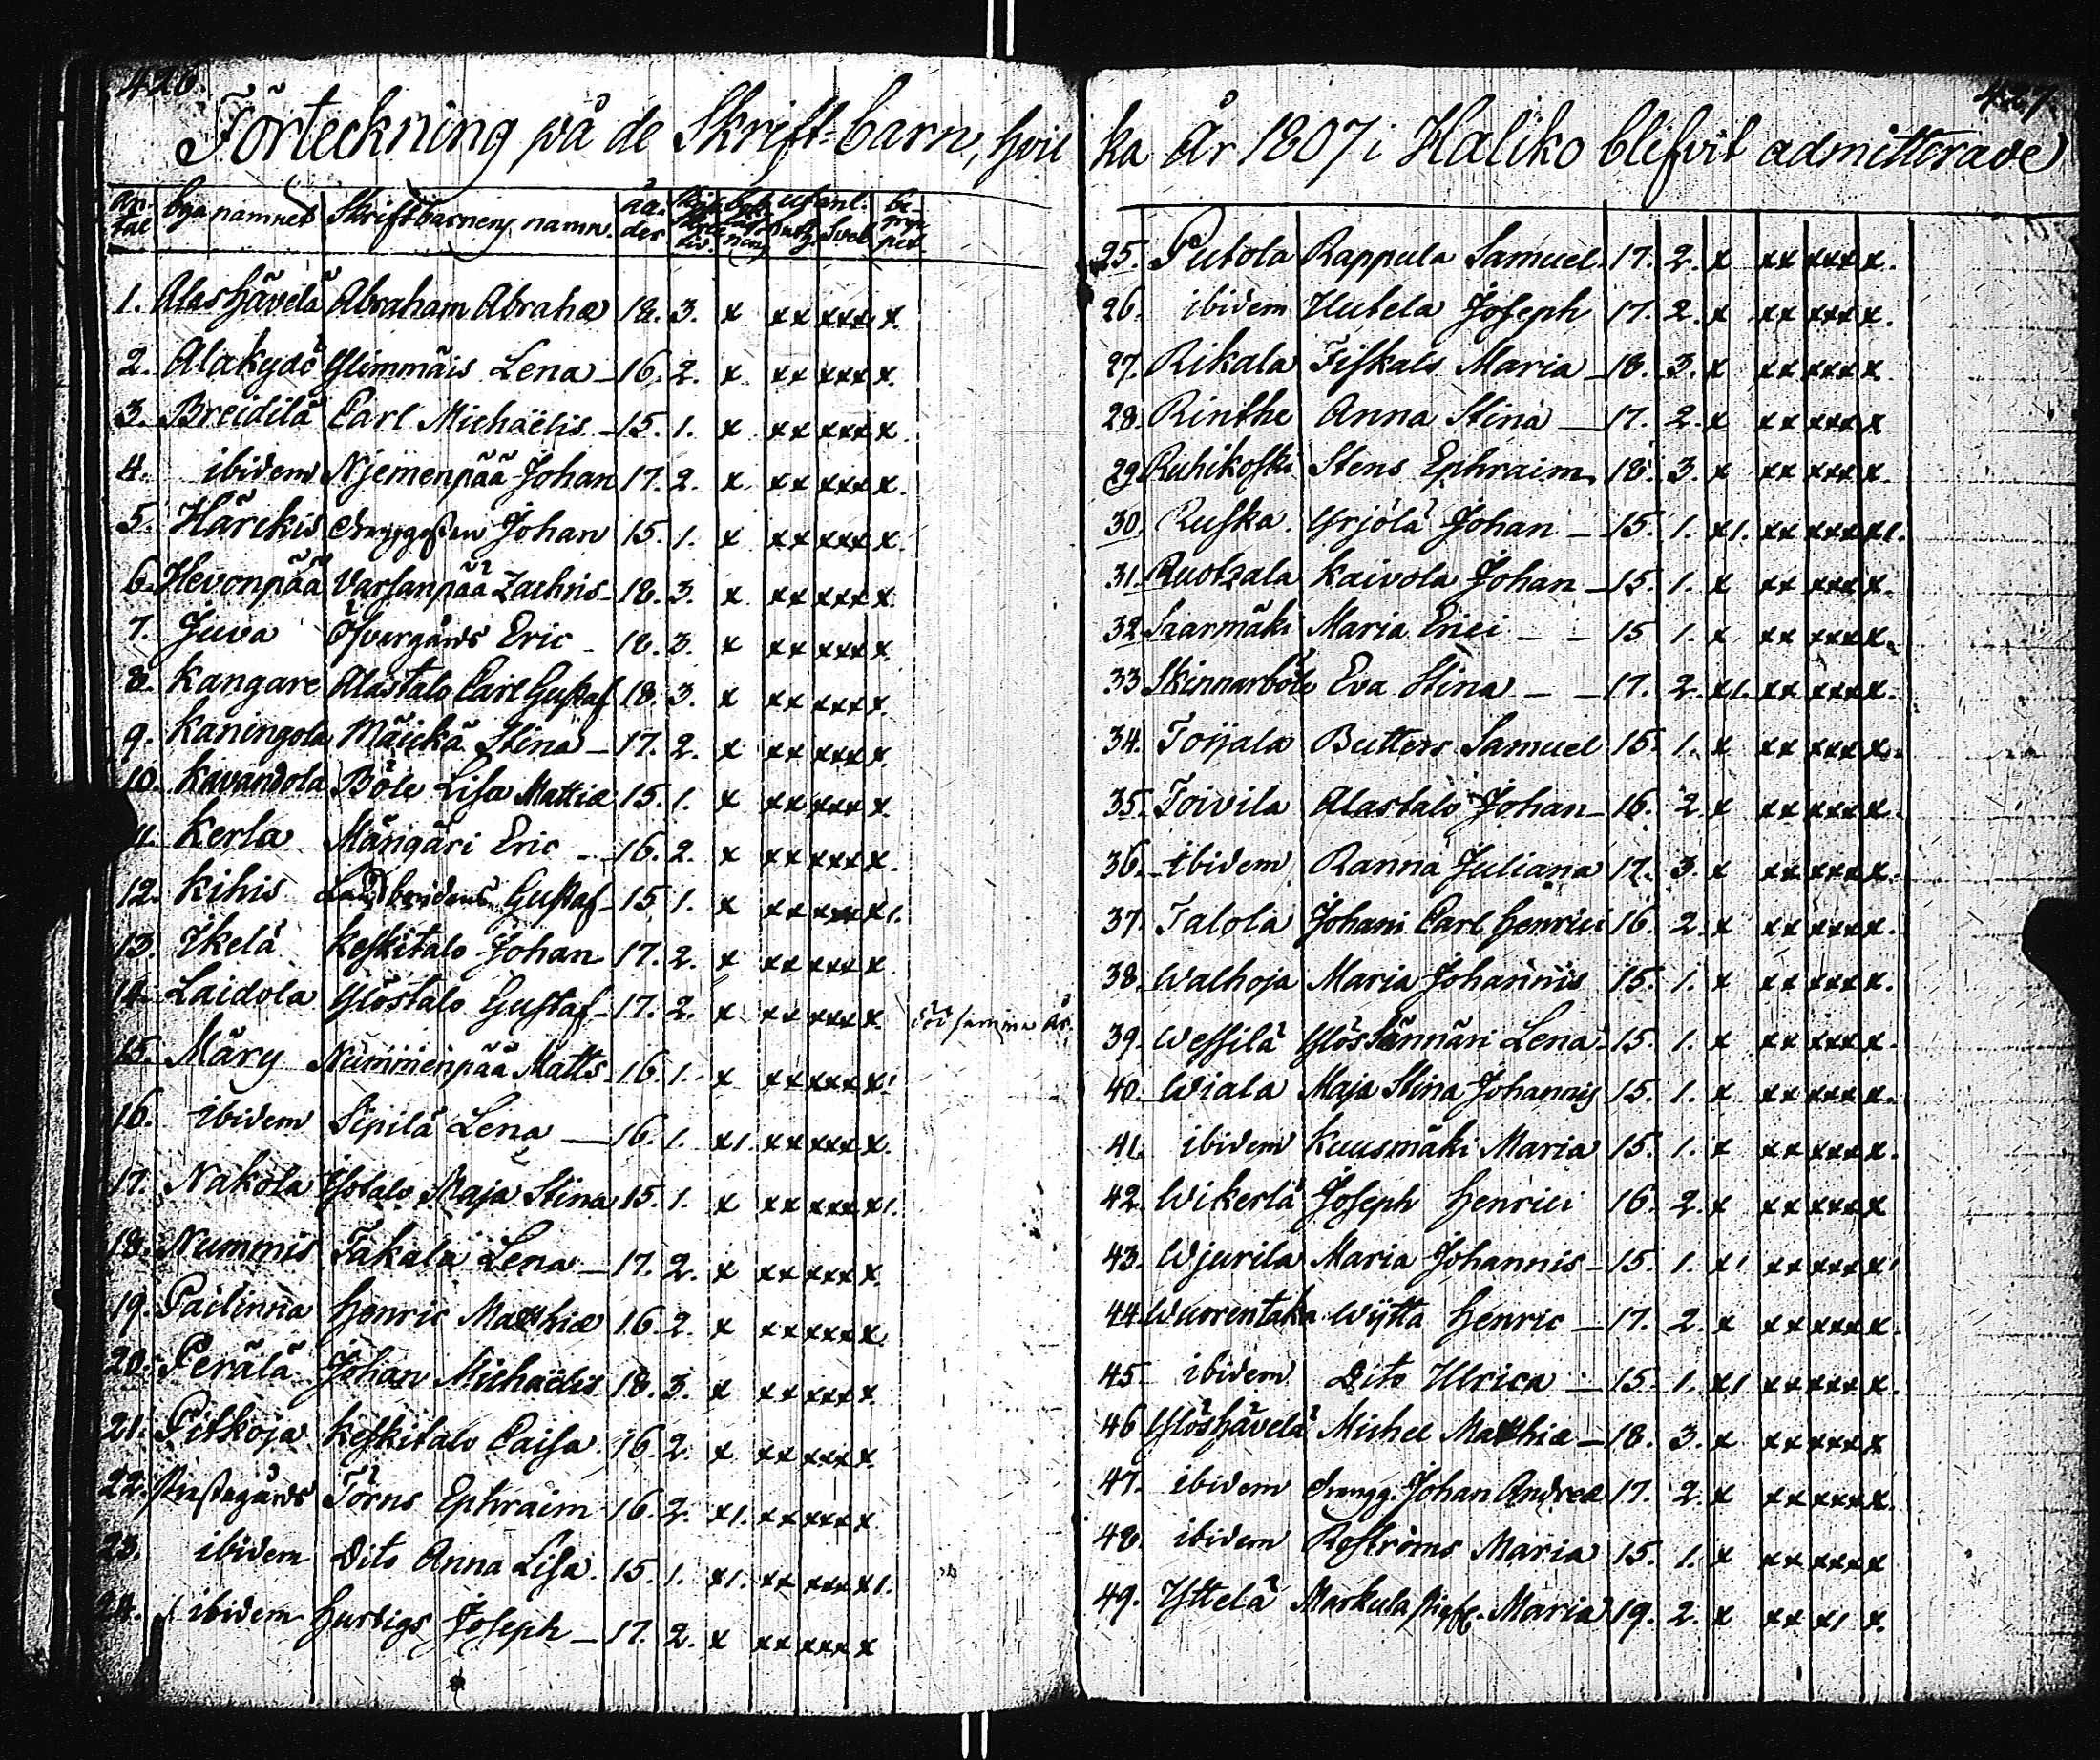 426.
Förteckning på de Skrift-barn, hvil
an-tal byanamnet Skriftbarnens namn. ål-der utanl. be-grep
1. Alashävelä Abraham Abrahæ 18. 3. x xx xxx x.
2. Alakydö Glimmäis Lena 16. 2. x xx xxx x.
3. Breidilä Carl Michaëlis 15. 1. x xx xxx x.
4. ibidem Njemenpää Johan 17. 2. x xx xxx x.
5. Härckis Johan 15. 1. x xx xxx x.
6. Hevonpää Varsanpää Zachris 18. 3. x xx xxx x.
7. Juva Öfvergårds Eric 18. 3. x xx xxx x.
8. Kangare Alastalo Carl Gustaf 18. 3. x xx xxx x.
9. Kaningola Mäickä Stina 17. 2. x xx xxx x.
10. Kavandola Böle Lisa Mattiæ 15. 1. x xx xxx x.
11. Kerla Mängäri Eric 16. 2. x xx xxx x.
12. Kihis Gustaf 15. 1. x xx xxx x1.
13. Ikelä Keskitalo Johan 17. 2. x xx xxx x.
14. Laidola Ylöstalo Gustaf 17. 2. x xx xxx x. död samma år.
15. Märy Nummenpää Matts 16. 1. x xx xxx x1
16. ibidem Sipilä Lena 16. 1. x1. xx xxx x.
17. Nakola Isotalo Maja Stina 15. 1. x xx xxx x1.
18. Nummis Takala Lena 17. 2. x xx xxx x.
19. Pailinna Henric Mathiæ 16. 2. x xx xxx x.
20. Perälä Johan Michaëlis 18. 3. x xx xxx x.
21. Pitkoja Keskitalo Caisa 16. 2. x xx xxx x.
22. Prästegårds Törns Ephraim 16. 2. x1. xx xxx x.
23. ibidem Dito Anna Lisa. 15. 1. x1. xx xxx x1.
24. ibidem Hurtigs Joseph 17. 2. x xx xxx x
427.
ka År 1807 i Haliko blifvit admitterade
25. Putola Rappula Samuel 17. 2. x xx xxx x.
26. ibidem Uutela Joseph 17. 2. x xx xxx x.
27. Rikala Fiskals Maria 18. 3. x xx xxx x.
28. Rinthe Anna Stina 17. 2. x xx xxx x
29. Ruhikoski Stens Ephraim 18. 3. x xx xxx x.
30. Ruska Yrjölä Johan 15. 1. x1. xx xxx x1.
31. Ruotzala Kaivola Johan 15. 1. x xx xxx x.
32. Saarmäki Maria Erici 15 1. x xx xxx x.
33 Skinnarböle Eva Stina 17. 2. x1. xx xxx x.
34. Toijala Butters Samuel 15. 1. x xx xxx x.
35. Toivila Alastalo Johan 16. 2. x xx xxx x.
36. ibidem Ranna Juliana 17. 3. x xx xxx x.
37. Talola Johani Carl Henrici 16. 2. x xx xxx x.
38. Walhoja Maria Johannis 15. 1. x xx xxx x.
39. Wessilä Ylöstännäri Lena 15. 1. x xx xxx x.
40. Wiala Maja Stina Johannis 15. 1. x xx xxx x.
41. ibidem Kuusmäki Maria 15. 1. x xx xxx x.
42. Wikerlä Joseph Henrici 16. 2. x xx xxx x
43. Wjurila Maria Johannis 15. 1. x1 xx xxx x1
44. Wuorentaka Wÿtta Henric 17. 2. x xx xxx x.
45. ibidem Dito Ulrica 15. 1. x1 xx xxx x.
46 Ylöshävelä Michel Mathiæ 18. 3. x xx xxx x
47. ibidem Johan Andreæ 17. 2. x xx xxx x.
48. ibidem Roströms Maria 15. 1. x xx xxx x
49. Yttelä Markula Maria 19. 2. x xx x1 x.